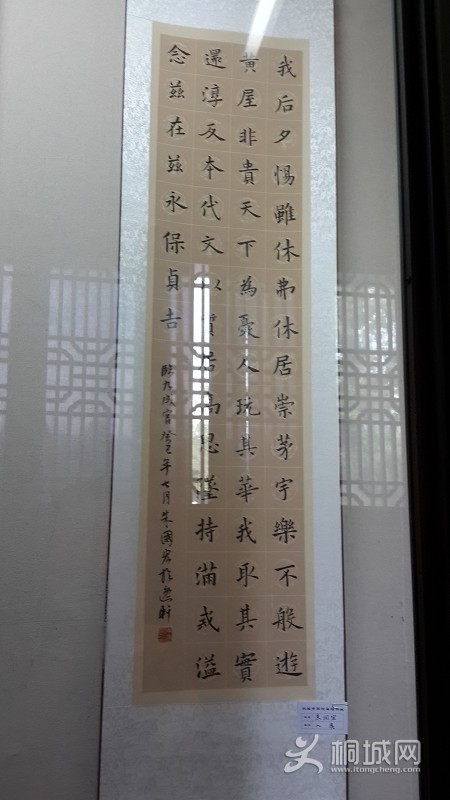 我后夕惕雖休弗休居崇茅宇樂不般遊
黃屋非貴天下為憂人玩其華我取其實
還淳反本代文以質居高思墜持滿戒溢
念茲在茲永保貞吉
臨九成宮癸巳年七月朱國宏於
朱國宏
入展
桐城网
www.itongcheng.com